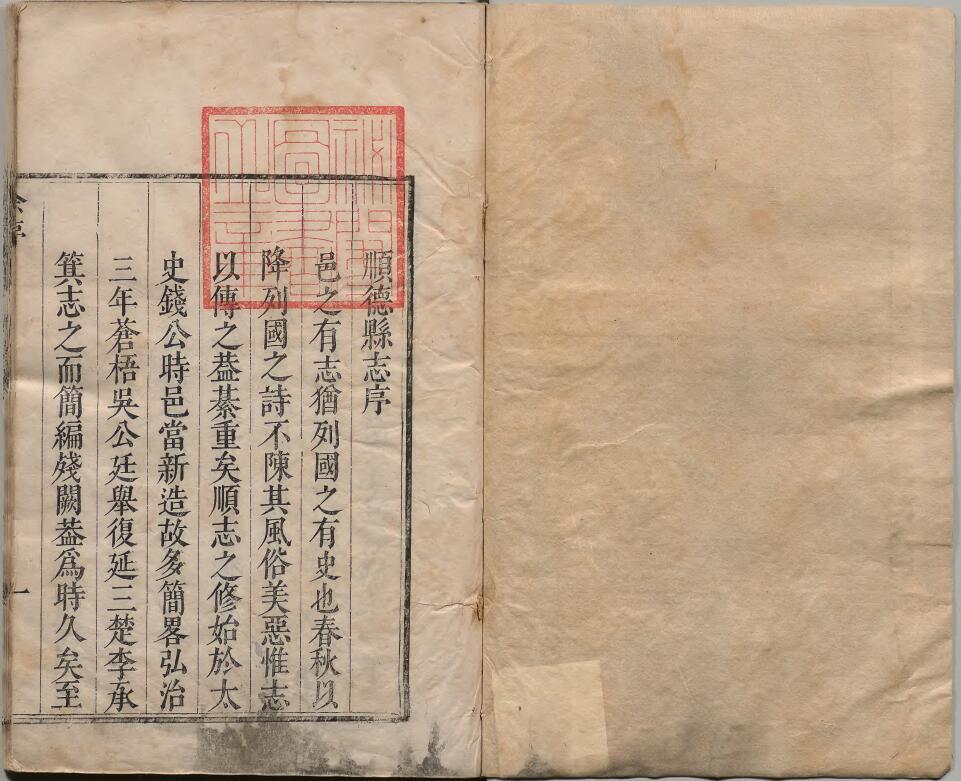 順德縣志序
邑之有志猶列國之有史也春秋以
降列國之詩不陳其風俗美惡惟志
以傳之葢綦重矣順志之修始於太
史錢公時邑當新造故多簡畧弘治
三年蒼梧吳公廷舉復延三楚李承
箕志之而簡編殘闕葢爲時久矣至
序
一